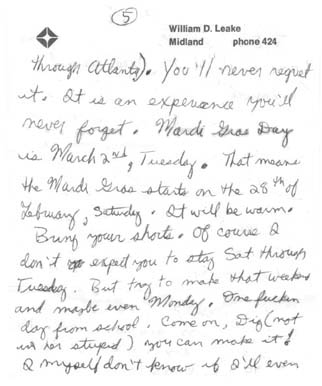 5
William D. Leake
Midland phone 424
through Atlanta). You'll never regret
it. It is an experience you'll
never forget. Mardi Gras Day
is March 2nd, Tuesday. That means
the Mardi Gras starts on the 28th of
February, Saturday. It will be warm.
Bring your shorts. Of course I
don't expect you to stay Sat through
Tuesday. But try to make that weekend
and maybe even Monday. One fuckin
day from school. Come on, Dig (not
in stupid) you can make it!
I myself don't know if I'll even